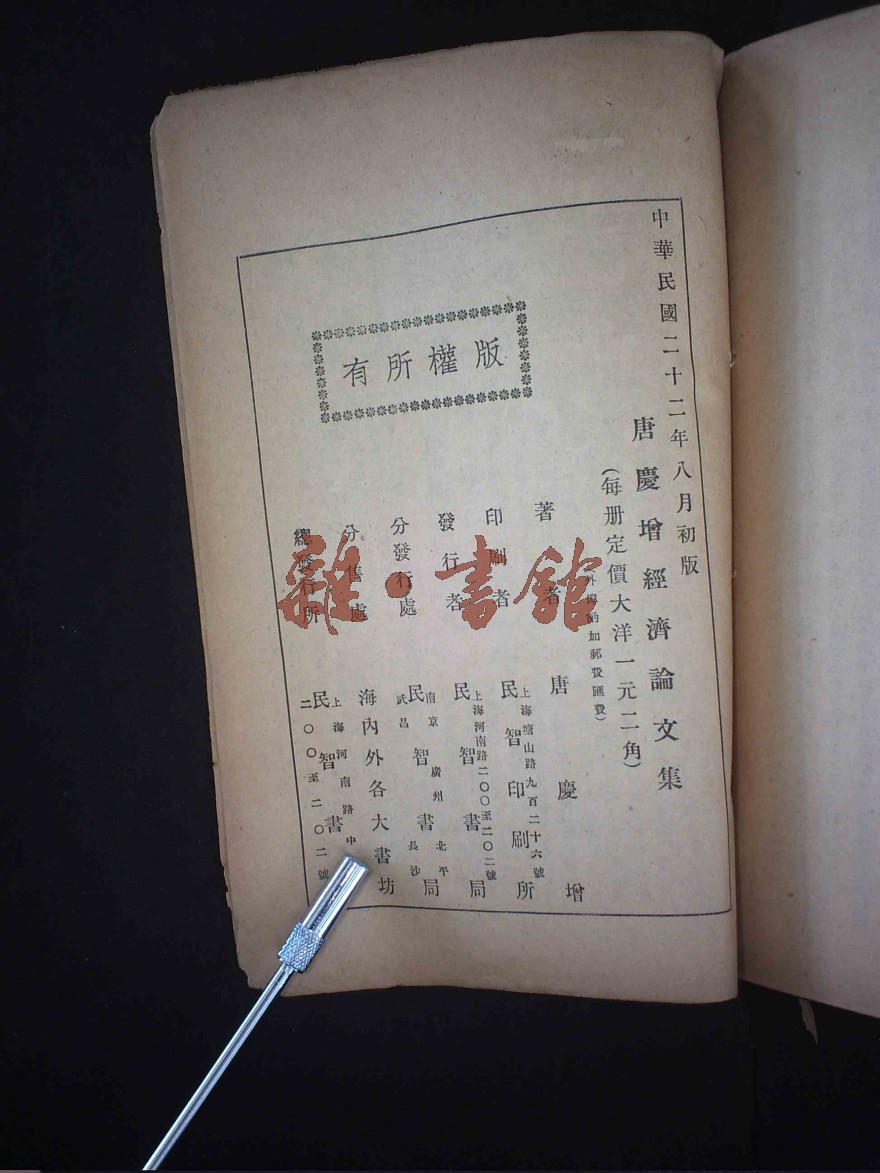 中華民國二十二年八月初版
唐慶增經濟論文集
(每册定價大洋一元二角)
加郵費匯費)
著者 唐慶增
印刷者 上海塘山路九百二十六號 民智印刷所
發行者 上海河南路二〇〇至二〇二號 民智書局
分發行處 南京 廣州 北平 民智書局 武昌 長沙
分售處 海內外各大書坊
總發行所 上海河南路中 民智書 二〇〇至二〇二號
版權所有
雜·書館